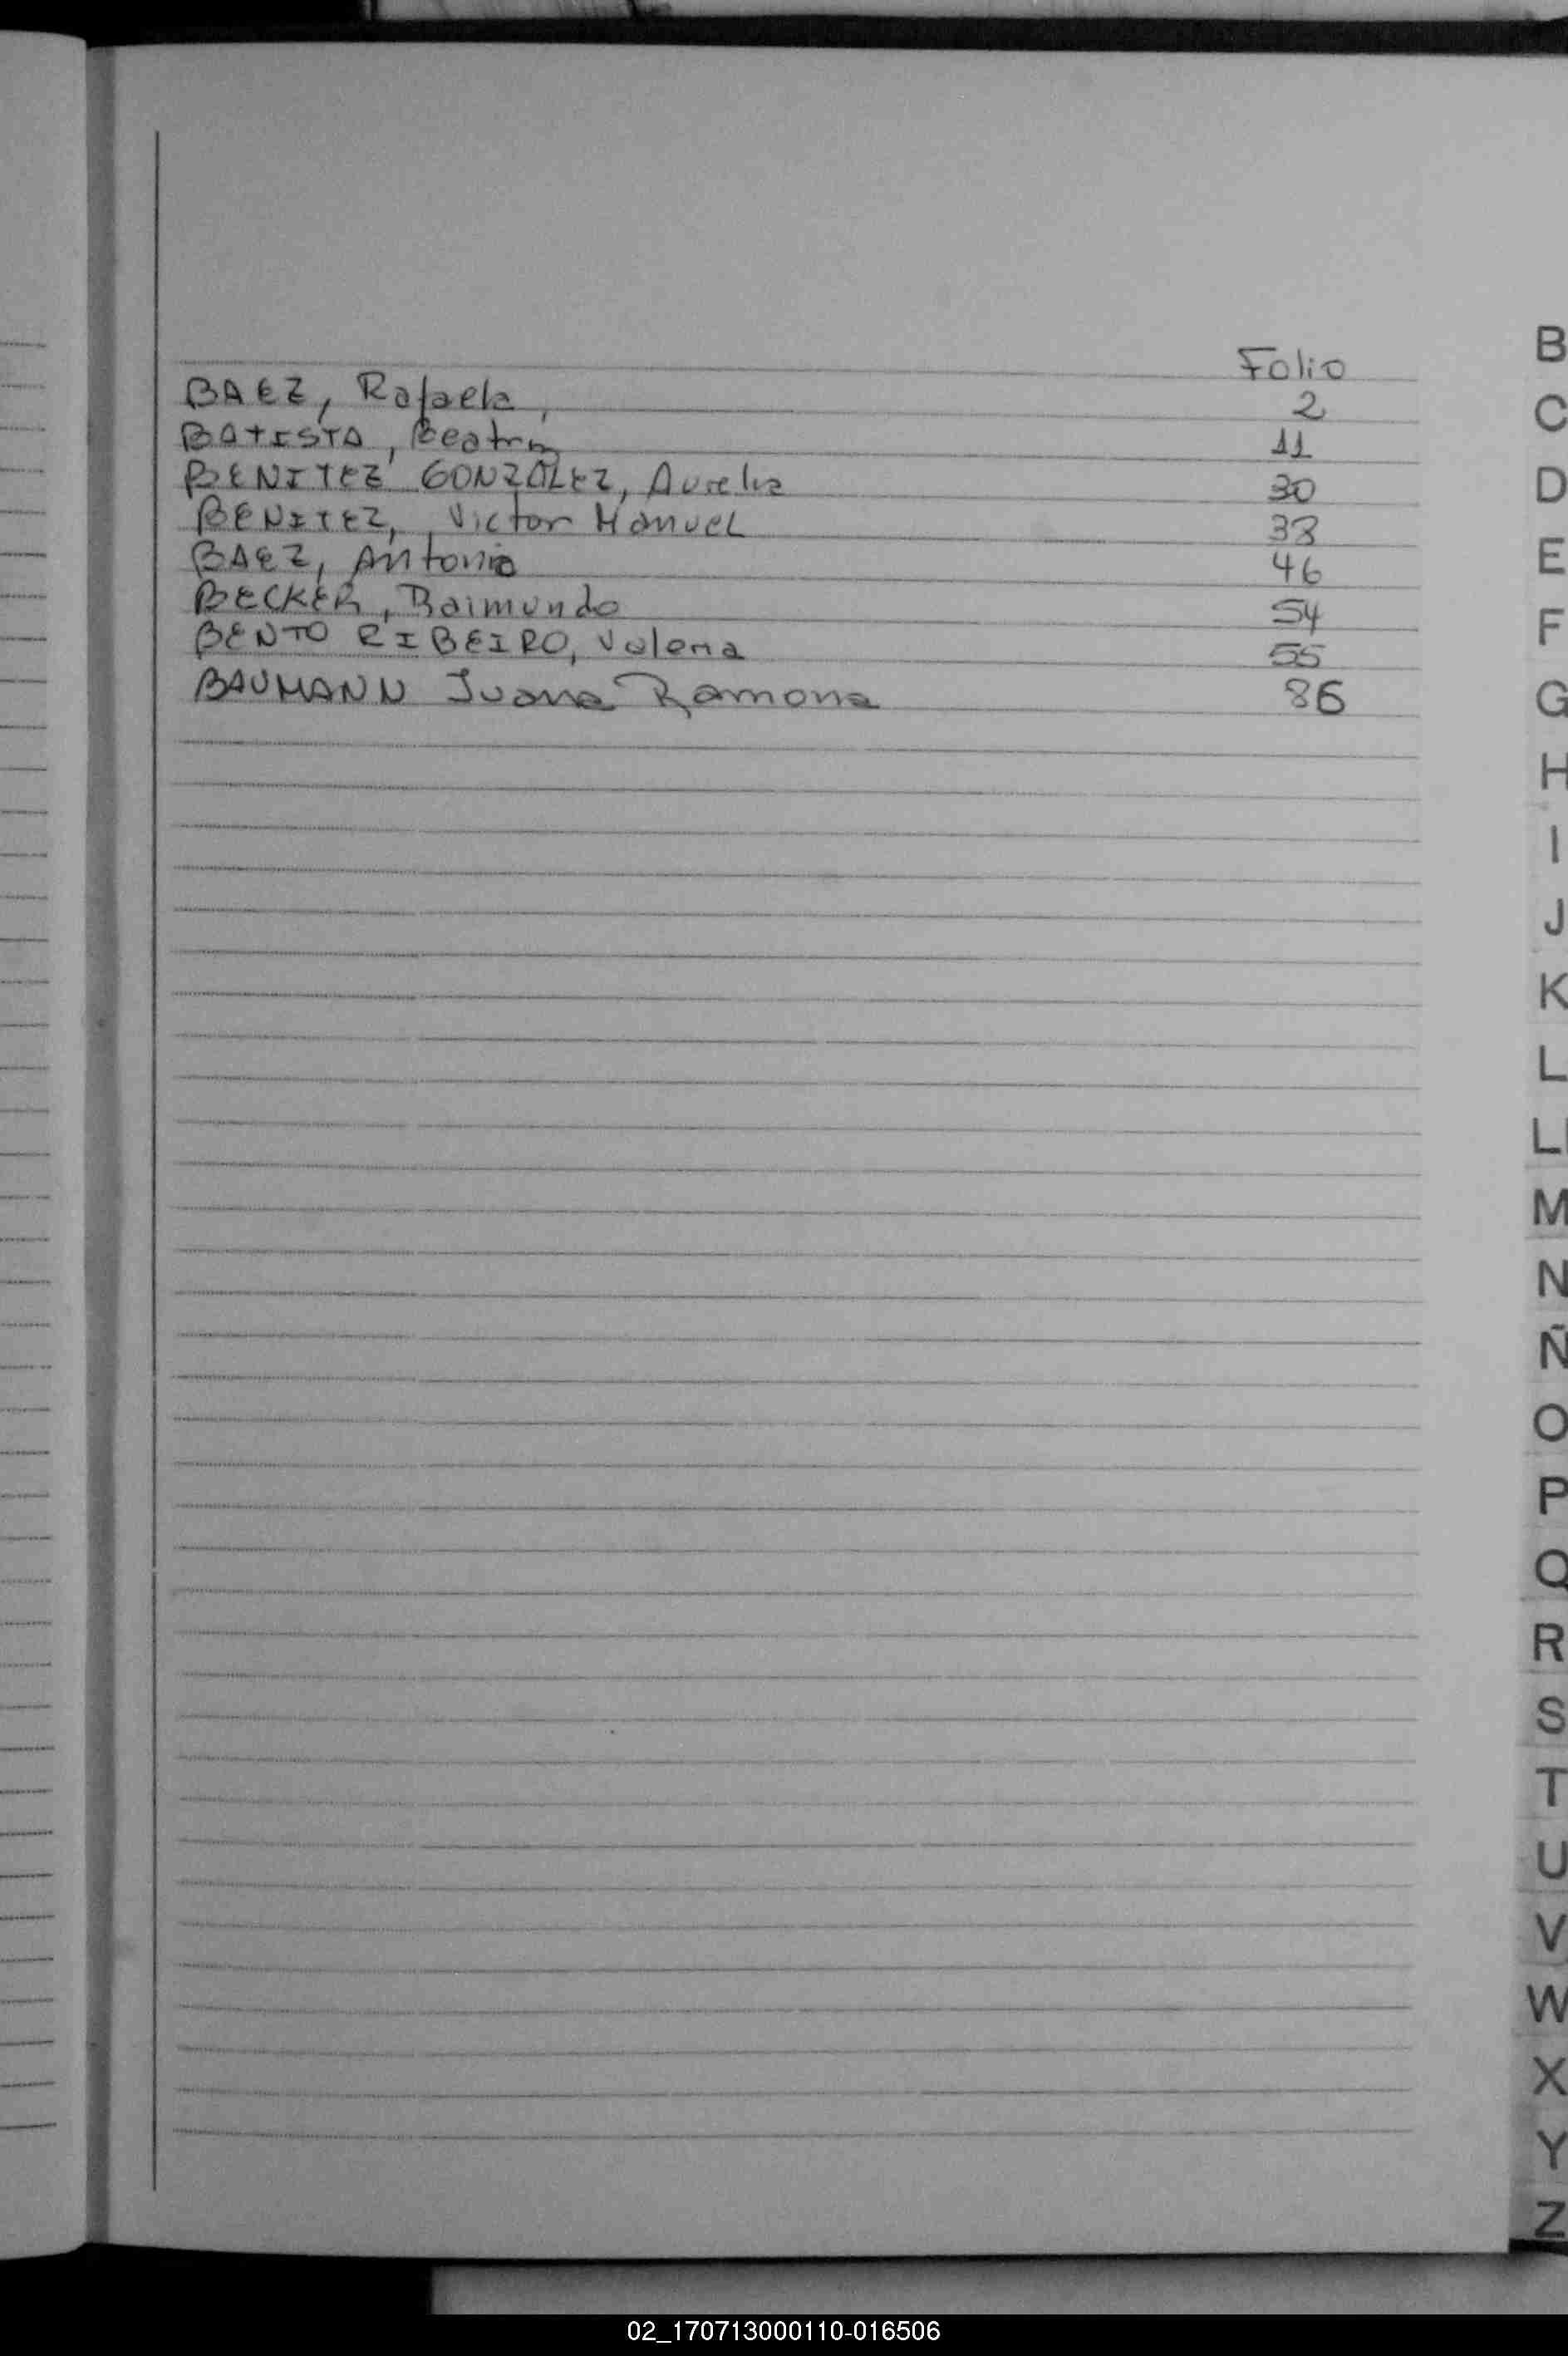 Folio
BAEZ, Rafaela, 2
BATISTA, Beatriz 11
BENITEZ GONZALEZ, Aurelia 30
BENITEZ, Victor Manuel 38
BAEZ, Antonio 46
BECKER, Raimundo 54
BENTO RIBEIRO, Valeria 55
BAUMANN Juana Ramona 86
B
C
D
E
F
G
H
I
J
K
L
Ll
M
N
Ñ
O
P
Q
R
S
T
U
V
W
X
Y
Z
02_170713000110-016506